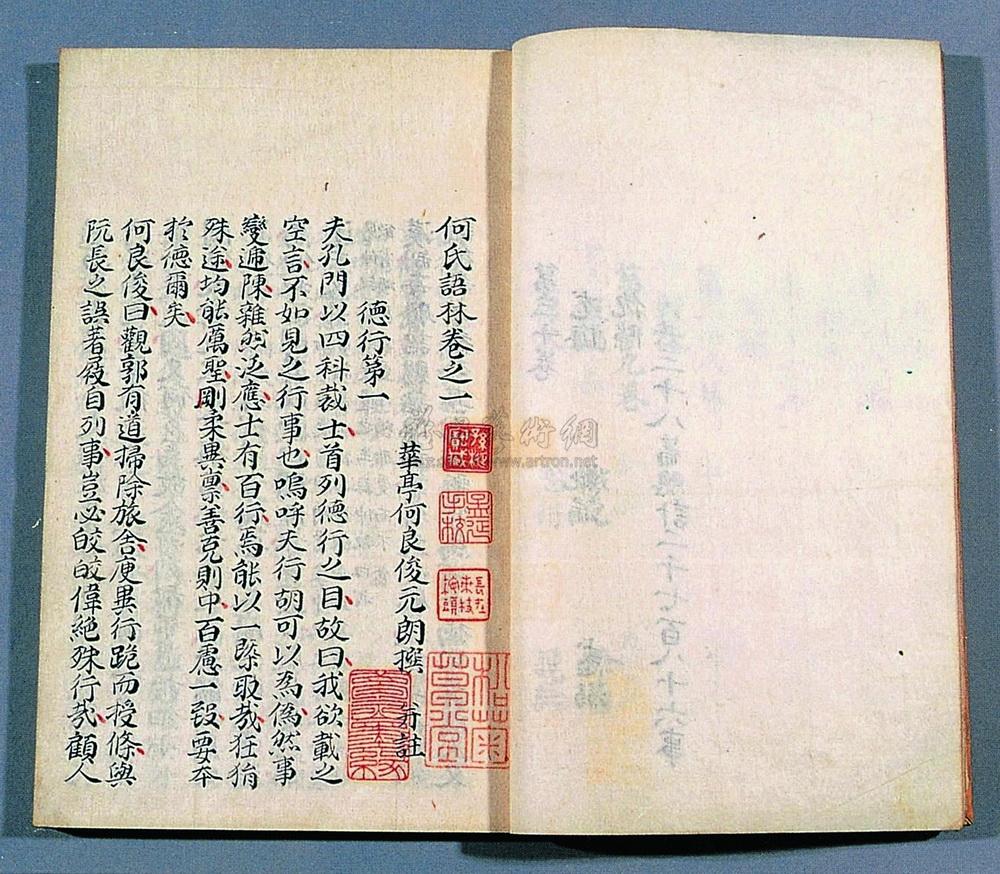 何氏語林卷之一
德行第一
華亭何良俊元朗撰并註
夫孔門以四科裁士首列德行之目故曰我欲載之
空言不如見之行事也嗚呼夫行胡可以爲僞然事
變遞陳雜然泛應士有百行焉能以一槩取哉狂狷
殊途均能厲聖剛柔異禀善克則中百慮一致要本
於德爾矣
何良俊曰觀郭有道掃除旅舍庾異行跪而授條與
阮長之誤著屐自列事豈必皎皎偉絕殊行哉顧人
www.artron.net